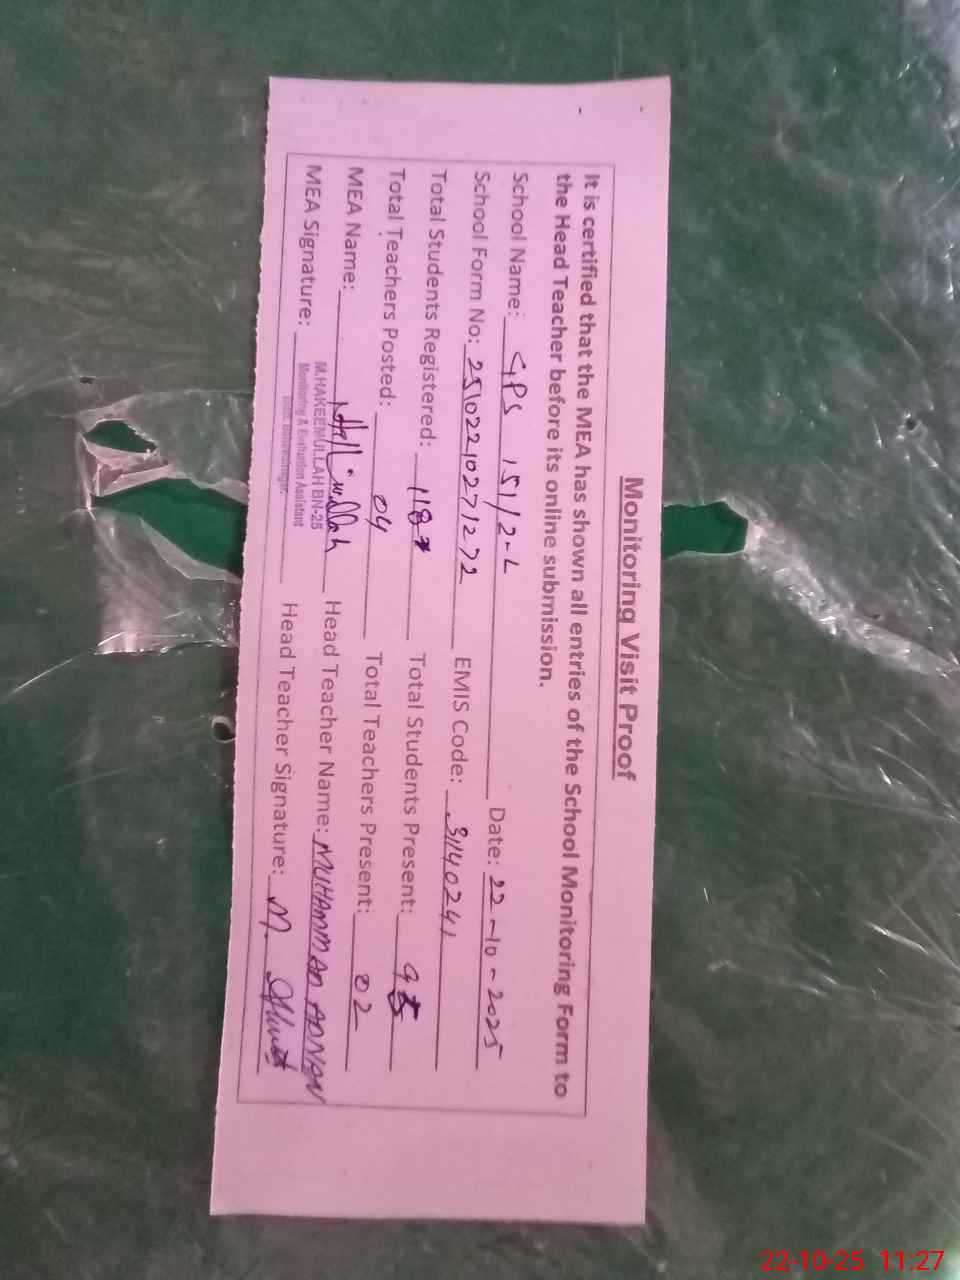 Monitoring Visit Proof
It is certified that the MEA has shown all entries of the School Monitoring Form to
the Head Teacher before its online submission.
School Name: GPS 151/2-L Date: 22-10-2025
School Form No: 25102210271272 EMIS Code: 31140241
Total Students Registered: 118 Total Students Present:
Total Teachers Posted: 04 Total Teachers Present: 02
MEA Name: Head Teacher Name: MUHAMMAD ADNAN
MEA Signature: Head Teacher Signature: M.
M.HAKEEMULLAH BN-25
Monitoring & Evaluation Assistant
Distt. Bahawalnagar.
22-10-25 11:27